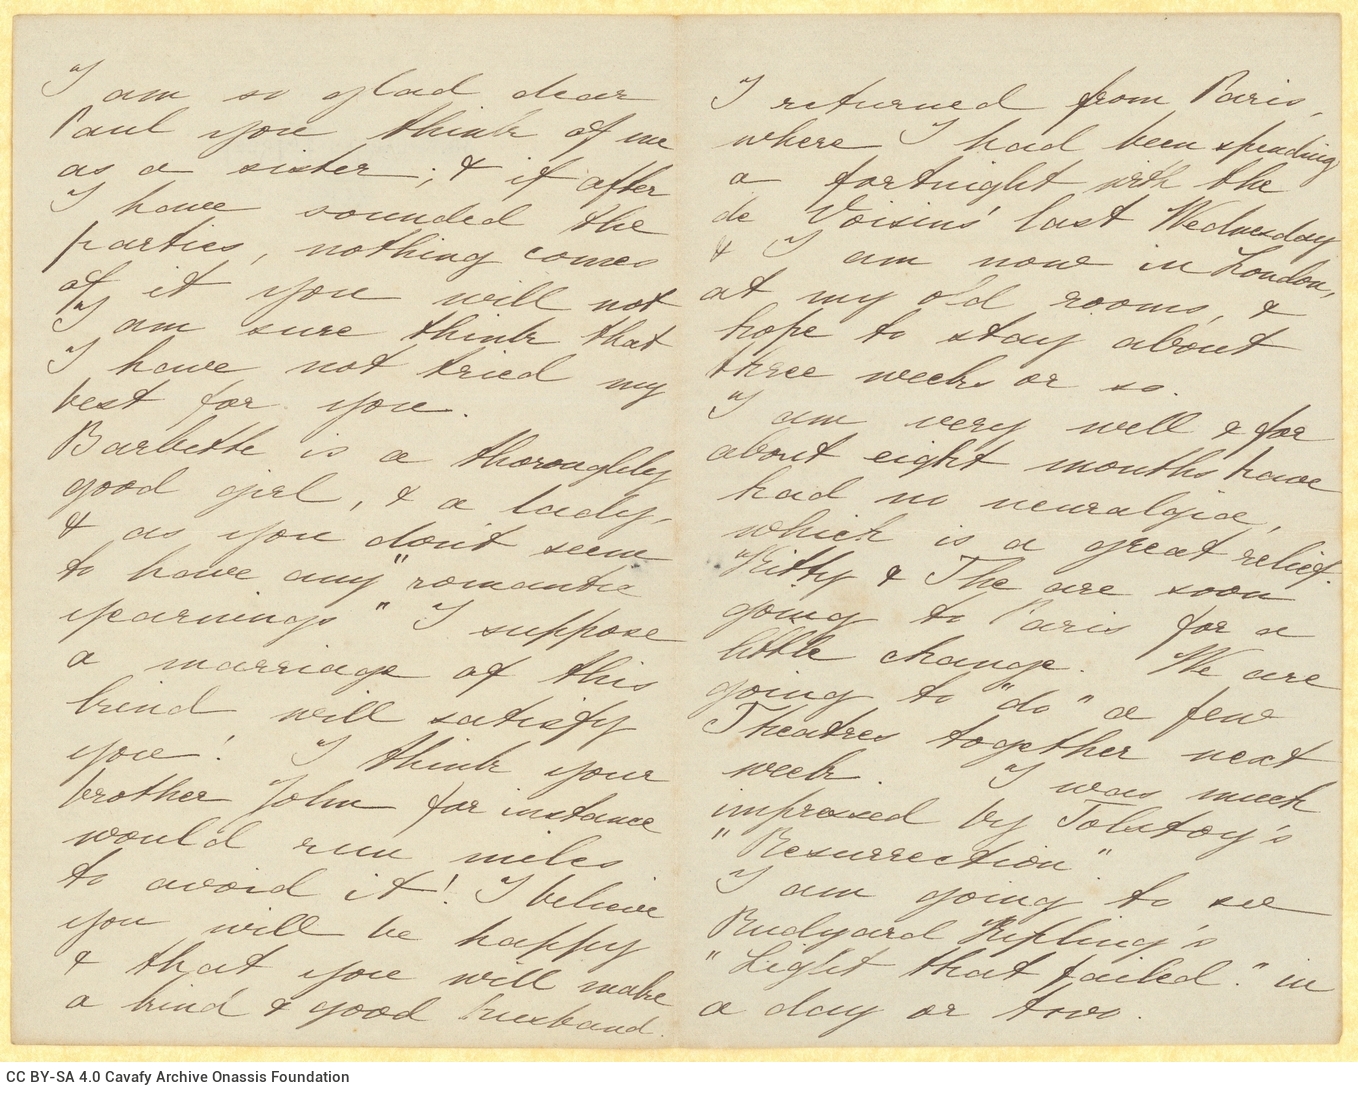 I am so glad dear
Paul you think of me
as a sister; & if after
I have sounded the
parties, nothing comes
of it you will not
I am sure think that
I have not tried my
best for you.
Barbette is a thoroughly
good girl, & a lady,
& as you don't seem
to have any "romantic
yearnings" I suppose
a marriage of this
kind will satisfy
you! I think your
brother John for instance
would run miles
to avoid it! I believe
you will be happy
& that you will make
a kind & good husband.
I returned from Paris,
where I had been spending
a fortnight with the
de Voisins' last Wednesday
& I am now in London,
at my old rooms, &
hope to stay about
three weeks or so.
I am very well & for
about eight months have
had no neuralgia,
which is a great relief.
Kitty & The are soon
going to Paris for a
little change. We are
going to "do" a few
Theatres together next
week. I was much
impressed by Tolstoy's
"Resurrection"
I am going to see
Rudyard Kipling's
"Light that failed." in
a day or two.
CC BY-SA 4.0 Cavafy Archive Onassis Foundation